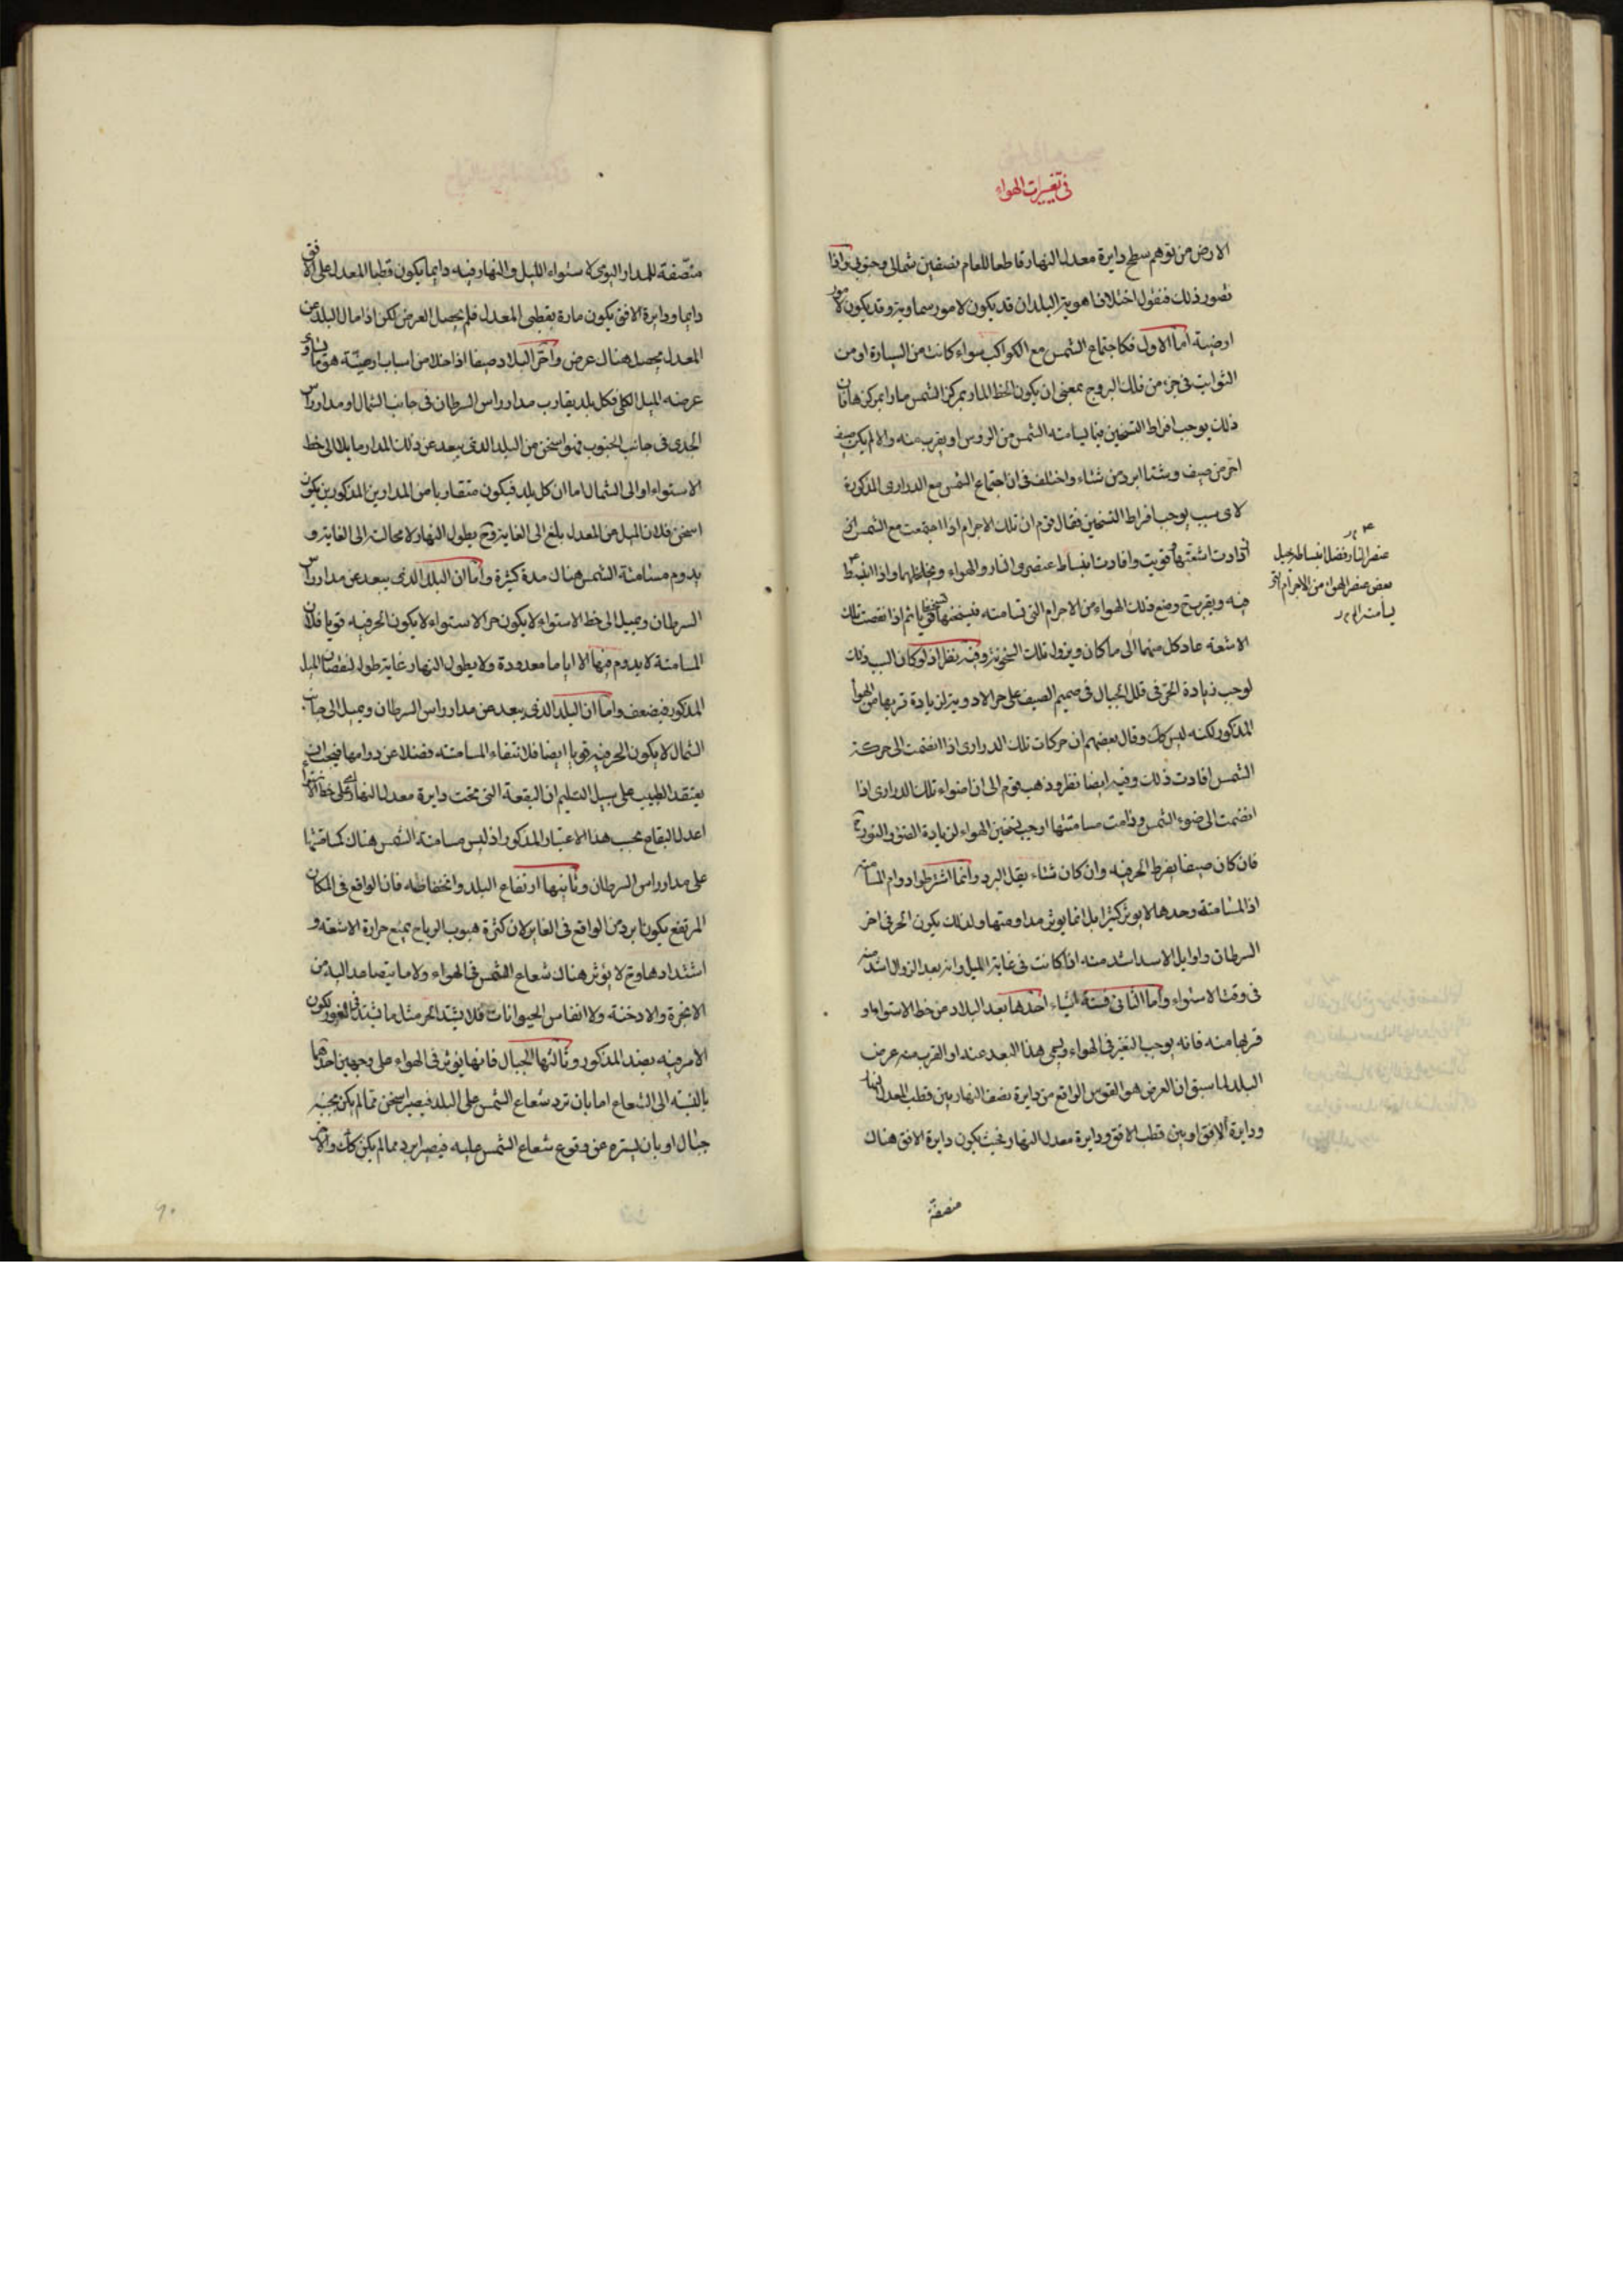 في تغيرات الهواء
الارض من توهم سطح دايرة معدل النهار قاطعا للعالم بنصفين شمالي وجنوبي واذا
تصور ذلك فنقول اختلاف اهوية البلدان قد يكون لامور سماوية وقد يكون لامور
ارضية اما الاول فكاجتماع الشمس مع الكواكب سواء كانت من السيارة او من
الثوابت في جزء من فلك البروج بمعنى ان يكون الخط المار بمركز الشمس مارا بمركزها فان
ذلك يوجب افراط التسخين فيما يسامته الشمس من الرؤس او يقرب منه والا لم يكن صيف
احر من صيف وشتا ابرد من شتاء واختلف في ان اجتماع الشمس مع الدراري المذكورة
لاي سبب يوجب افراط التسخين فقال قوم ان تلك الاجرام اذا اجتمعت مع الشمس
ازدادت اشعتها قويت وافادت انبساط عنصري النار والهواء وتخلخلهما واذا انبسط
فيه ويقرب ح وضع ذلك الهواء من الاجرام التي تسامته فيسخنها تسخينا قويا ثم اذا نقصت تلك
الاشعة عاد كل منهما الى ما كان ويزول تلك السخونة وفيه نظر اذ لو كان السبب ذلك
لوجب زيادة الحر في قلل الجبال في صميم الصيف على حر الاودية لزيادة قربها من الهواء
المذكور لكنه ليس كك وقال بعضهم ان حركات تلك الدراري اذا انضمت الى حركة
الشمس افادت ذلك وفيه ايضا نظر وذهب قوم الى ان اضواء تلك الدراري اذا
انضمت الى ضوء الشمس ودامت مسامتتها اوجب تسخين الهواء لزيادة الضوء والنور ح
فان كان صيفا يفرط الحر فيه وان كان شتاء يقل البرد وانما اشترطوا دوام المسامتة
اذ المسامتة وحدها لا يوثر كثيرا بل انما يوثر مداومتها ولذلك يكون الحر في اخر
السرطان واوايل الاسد اشد منه اذا كانت في غاية الميل وانه بعد الزوال اشد منه
في وقت الاستواء واما الثاني فستة اشياء احدها بعد البلاد من خط الاستواء او
قربها منه فانه يوجب التغير في الهواء ويسمى هذا البعد عنه او القرب منه عرض
البلد لما سبق ان العرض هو القوس الواقع من دايرة نصف النهار بين قطب المعدل النهار
ودايرة الافق او بين قطب الافق ودايرة معدل النهار بحيث يكون دايرة الافق هناك
منصفة
عنصر النار فضل انبساط يحيل
بعض عنصر الهواء من الاجرام التي
يسامته الى
منصفة للمدار اليومي لاستواء الليل والنهار فيه دايما يكون قطبا المعدل على الافق
دايما ودايرة الافق يكون مارة بقطبي المعدل فلم يحصل العرض لكن اذا مال البلد عن
المعدل يحصل هناك عرض واحر البلاد صيفا اذا خلا من اسباب ارضية هو ما يساوي
عرضه الميل الكلي فكل بلد يقارب مدار راس السرطان في جانب الشمال او مدار راس
الجدي في جانب الجنوب فهو اسخن من البلد الذي يبعد عن ذلك المدار مايلا الى خط
الاستواء او الى الشمال اما ان كل بلد فيكون متقاربا من المدارين المذكورين يكون
اسخن فلان الميل من المعدل بلغ الى الغاية وح يطول النهار لا محالة الى الغاية و
يدوم مسامتة الشمس هناك مدة كثيرة واما ان البلد الذي يبعد عن مدار راس
السرطان ويميل الى خط الاستواء لا يكون حر الاستواء لا يكون الحر فيه قويا فلان
المسامتة لا يدوم فيها الا اياما معدودة ولا يطول النهار غاية طوله لنقصان الميل
المذكور فيضعف واما ان البلد الذي يبعد عن مدار راس السرطان ويميل الى جانب
الشمال لا يكون الحر فيه قويا ايضا فلانتفاء المسامتة فضلا عن دوامها فيجب ان
يعتقد الطبيب على سبيل التسليم ان البقعة التي تحت دايرة معدل النهار اي على خط الاستواء
اعدل البقاع بحسب هذا الاعتبار المذكور اذ ليس مسامتة الشمس هناك كمسامتتها
على مدار راس السرطان وثانيها ارتفاع البلد وانخفاظه فان الواقع في المكان
المرتفع يكون ابرد من الواقع في الغاير لان كثرة هبوب الرياح يمنع حرارة الاشعة و
اشتدادها وح لا يؤثر هناك شعاع الشمس في الهواء ولا ما يتصاعد اليه من
الابخرة والادخنة ولا انفاس الحيوانات فلا يشتد الحر مثل ما يشتد في الغور يكون
الامر فيه بضد المذكور وثالثها الجبال فانها يوثر في الهواء على وجهين احدهما
بالنسبة الى الشعاع اما بان ترد شعاع الشمس على البلد فيصير اسخن مما لم يكن بجنبه
جبال او بان يستره عن وقوع شعاع الشمس عليه فيصير ابرد مما لم يكن كك والاخر
٩٠